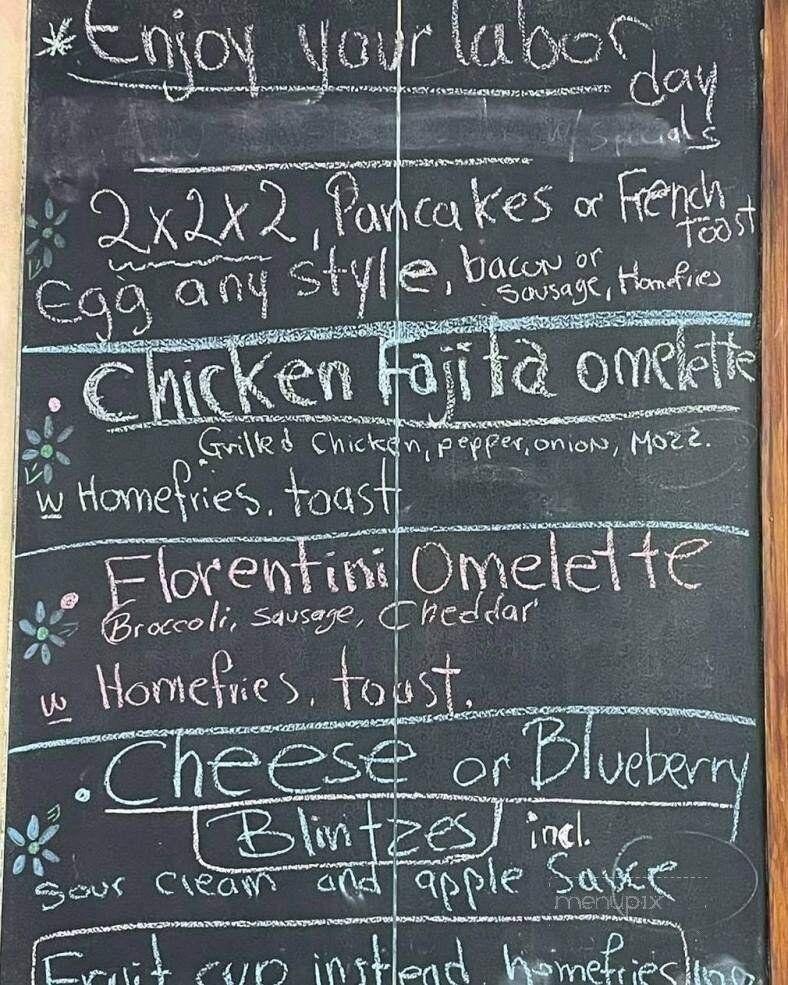 * Enjoy your labor
day
w/ Specials
2x2x2, Pancakes or French
toast
Egg any style, bacon or
sausage, Homefries
Chicken Fajita omelette
Grilled Chicken, pepper, onion, Mozz.
w Homefries. toast
Florentini Omelette
Broccoli, sausage, Cheddar
w Homefries. toast.
Cheese or Blueberry
Blintzes incl.
sour cream and apple Sauce
menupix
Fruit cup instead homefries